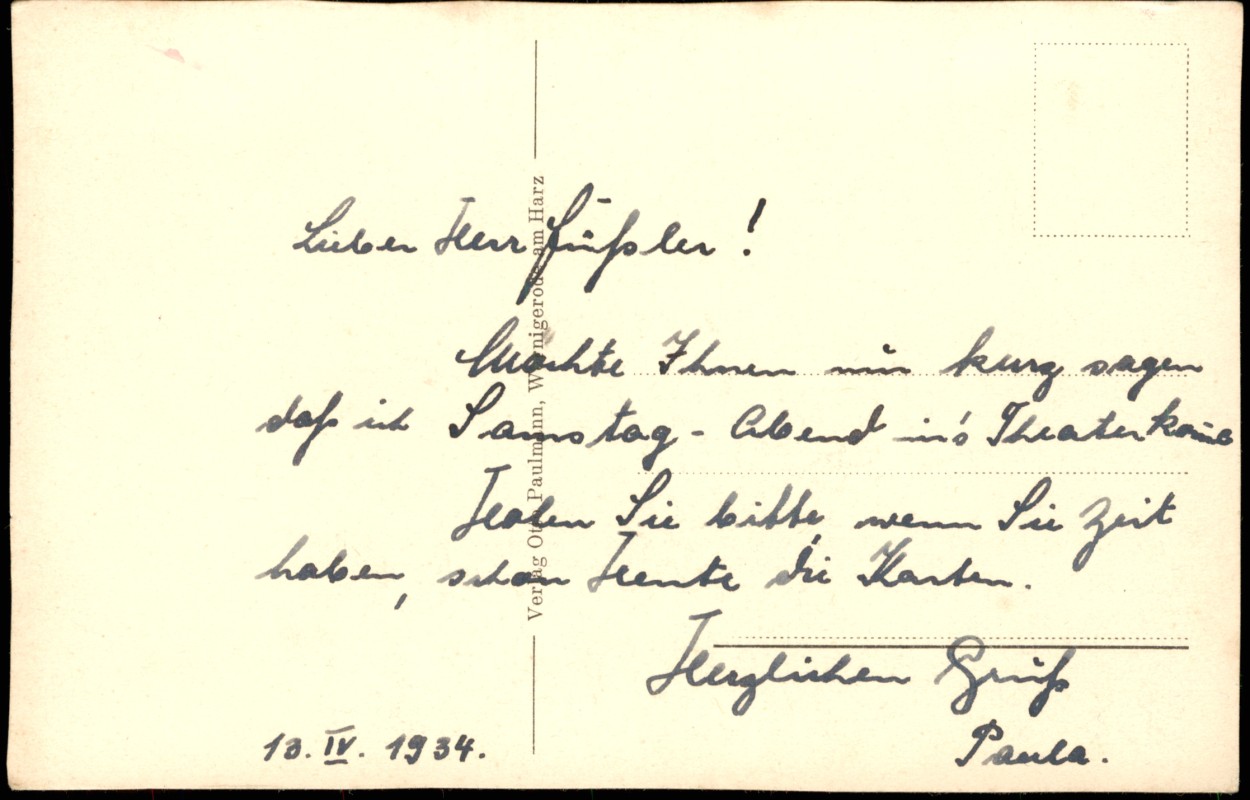 Lieber Herr Füßler!
Möchte Ihnen nur kurz sagen
daß ich Samstag-Abend in's Theater kome
Holen Sie bitte, wenn Sie Zeit
haben, schon Heute die Karten.
Herzlichen Gruß
Paula.
13. IV. 1934.
Verlag Otto Paulmann, Wernigerode am Harz